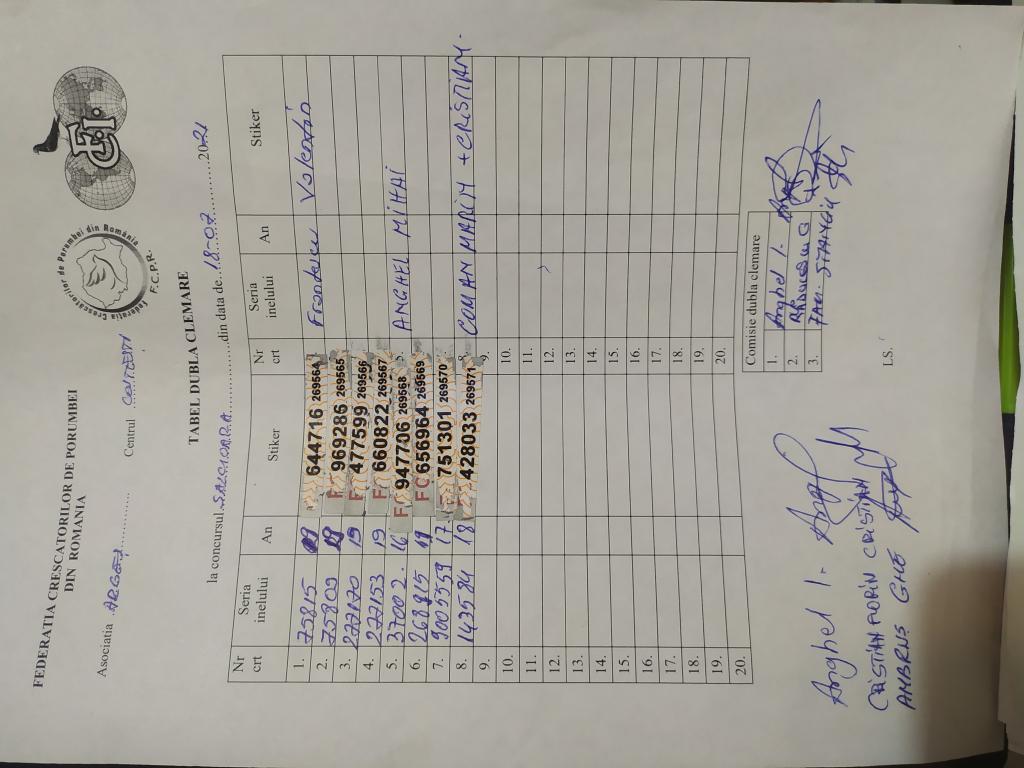 FEDERATIA CRESCATORILOR DE PORUMBEI
DIN ROMANIA
Asociatia ARGEȘ Centrul
Federatia Crescatorilor de Porumbei din România
F.C.P.R.
TABEL DUBLA CLEMARE
la concursul din data de 18-07 2021
Nr crt Seria inelului An Stiker Nr crt Seria inelului An Stiker
1. 75815 19 644716 269564 Valentin
2. 75809 19 969286 269565
3. 19 477599 269566
4. 277153 19 660822 269567
5. 37002. 16 F 947706 269568 5. ANGHEL MIHAI
6. 19 FC 656964 269569
7. 9005359 17 F 751301 269570
8. 143584 18 428033 269571 8. COMAN MARIN + CRISTIAN.
9. 9.
10. 10.
11. 11.
12. 12.
13. 13.
14. 14.
15. 15.
16. 16.
17. 17.
18. 18.
19. 19.
20. 20.
Comisie dubla clemare
1. Anghel I.
2.
3.
L.S.
Anghel I.
CRISTIAN FLORIN CRISTIAN
AMBRUS GHE